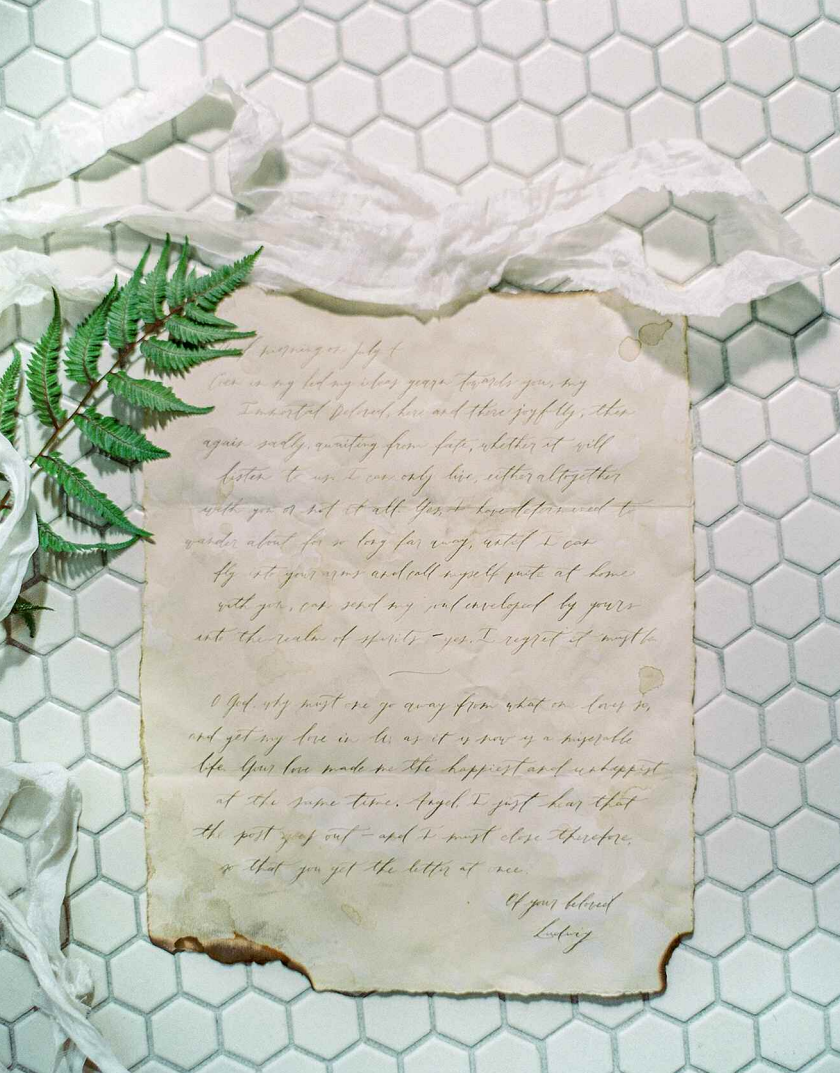 morning on July 7
Even in my bed my ideas yearn towards you, my
Immortal Beloved, here and there joyfully, then
again sadly, awaiting from fate, whether it will
listen to us. I can only live, either altogether
with you or not at all. Yes, I have determined to
wander about for so long far away, until I can
fly into your arms and call myself quite at home
with you, can send my soul enveloped by yours
into the realm of spirits - yes, I regret, it must be
O God, why must one go away from what one loves so,
and yet my love in as it is now is a miserable
life. Your love made me the happiest and unhappiest
at the same time. Angel, I just hear that
the post goes out - and I must close therefore,
so that you get the letter at once.
Of your beloved
Ludwig